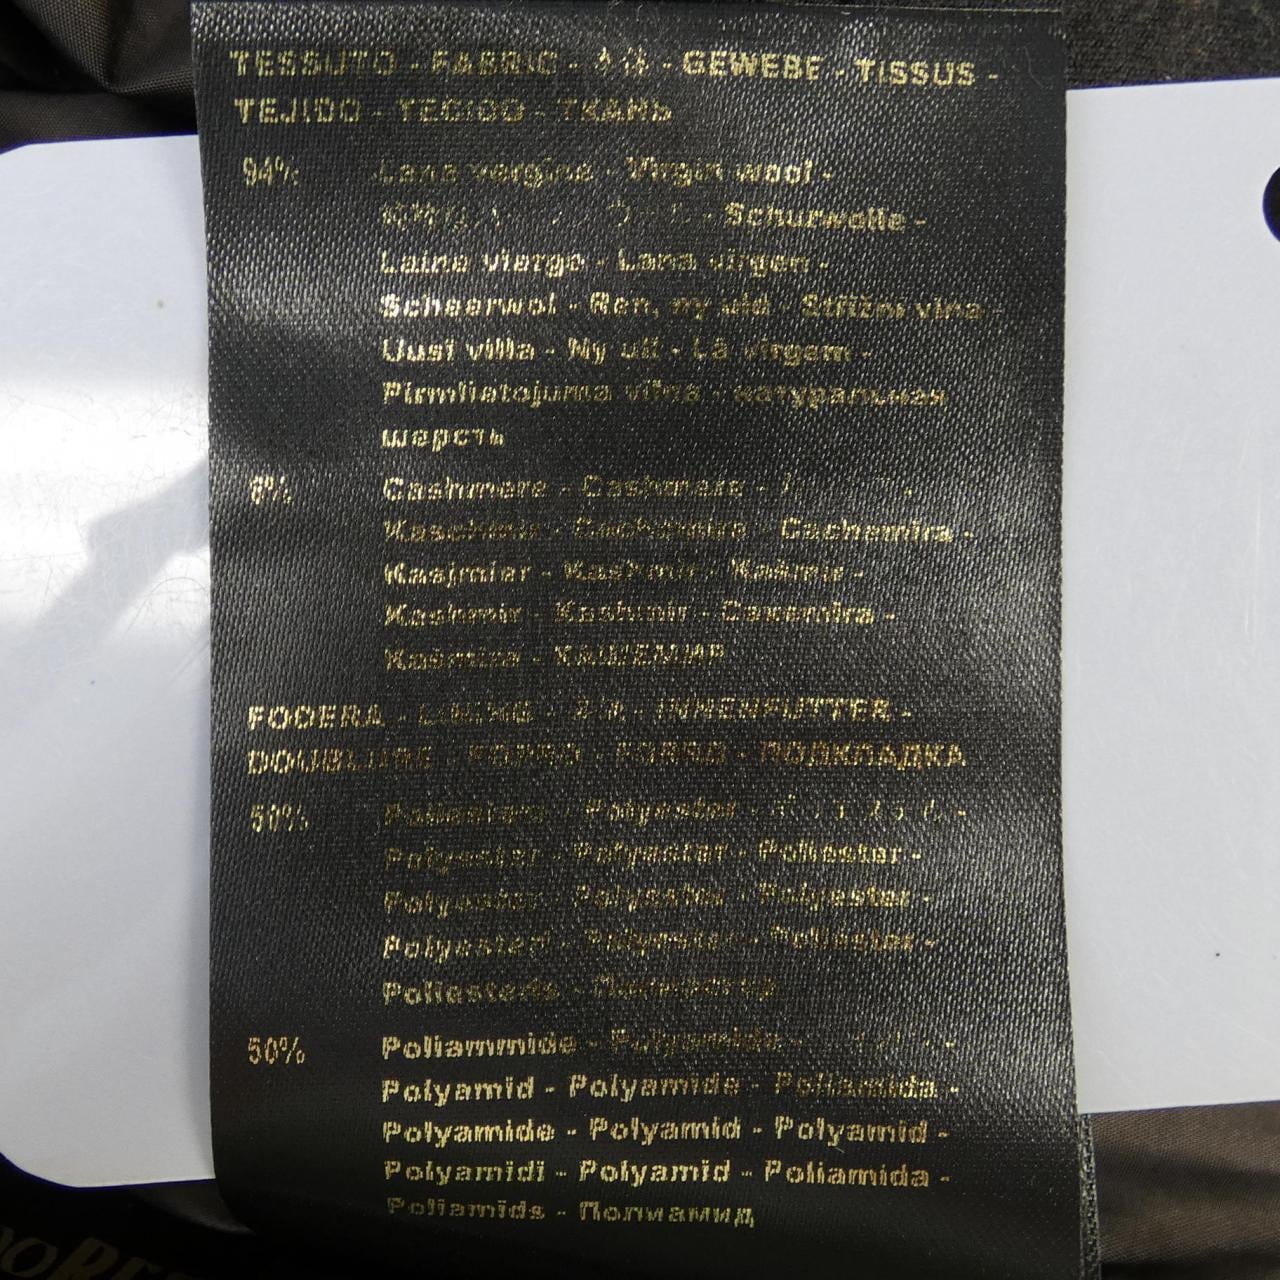 TESSUTO - FABRIC - - GEWEBE - TISSUS -
TEJIDO - TECIDO - ТКАНЬ
94% Lana vergine - Virgin wool -
- Schurwolle -
Laine vierge - Lana virgen -
Scheerwol - Ren, ny uld - Střižní vlna -
Uusi villa - Ny ull - Lã virgem -
Pirmlietojuma vilna - натуральная
шерсть
6% Cashmere - Cashmere -
Kaschmir - Cachemire - Cachemira -
Kasjmier - Kashmir - Kašmír -
Kashmir - Kashmir - Caxemira -
Kašmira - КАШЕМИР
FODERA - LINING - - INNENFUTTER -
DOUBLURE - FORRO - FORRO - ПОДКЛАДКА
50% Poliestere - Polyester -
Polyester - Polyester - Poliester -
Polyester - Polyester - Polyester -
Polyesteri - Polyester - Poliester -
Poliesteris - Полиэстер
50% Poliammide - Polyamide -
Polyamid - Polyamide - Poliamida -
Polyamide - Polyamid - Polyamid -
Polyamidi - Polyamid - Poliamida -
Poliamids - Полиамид